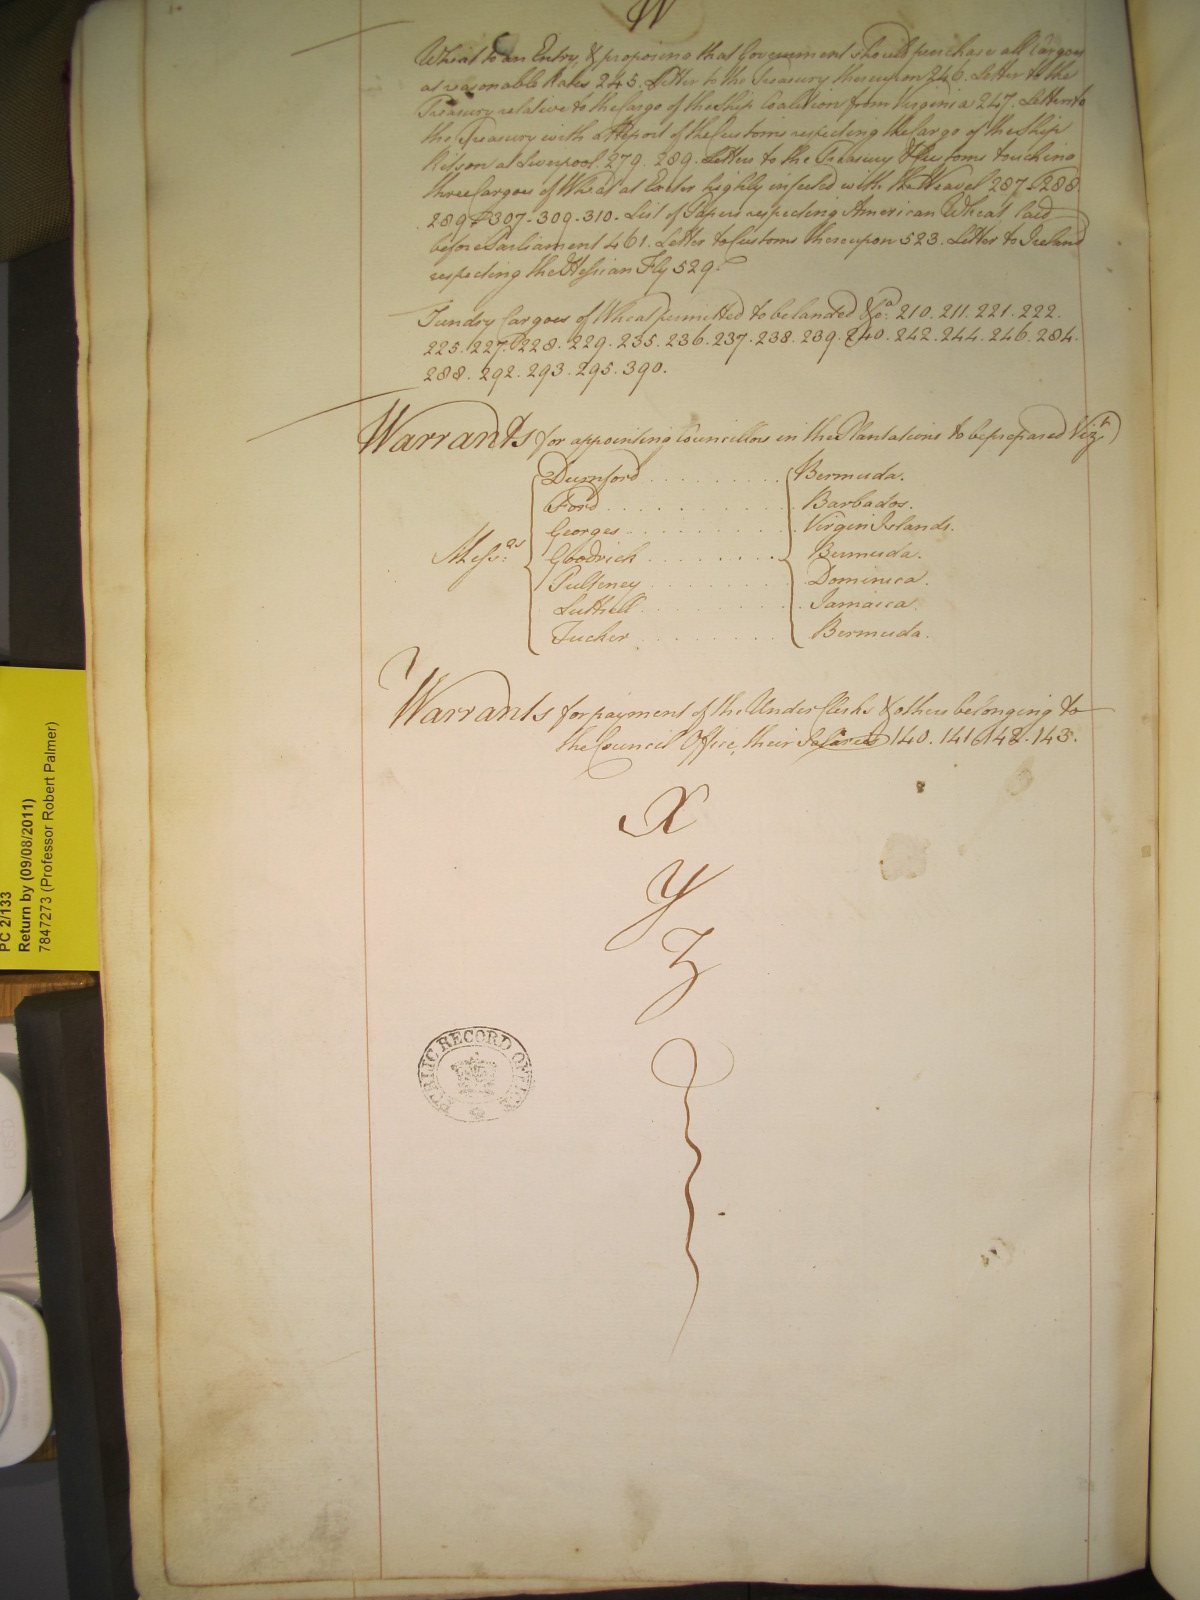 W
Wheat to an Entry & proposing that Government should purchase all Cargoes
at reasonable Rates 245. Letter to the Treasury thereupon 246. Letter to the
Treasury relative to the Cargo of the Ship Coalition from Virginia 247. Letter to
the Treasury with a Report of the Customs respecting the Cargo of the Ship
at Liverpool 279. 289. Letters to the Treasury & Customs touching
three Cargoes of Wheat at Exeter highly infected with the Weavel 287. 288
289 307-309-310. List of Papers respecting American Wheat laid
before Parliament 461. Letter to Customs thereupon 523. Letter to Ireland
respecting the Hessian Fly 529.
Sundry Cargoes of Wheat permitted to be landed &c.a 210. 211. 221. 222.
225. 227. 228. 229. 235. 236. 237. 238. 239. 240. 242. 244. 246. 284.
288. 292. 293. 295. 390.
Warrants for appointing Councillors in the Plantations to be prepared Vizt.
Durnford . . . . . . . . . Bermuda.
Ford . . . . . . . . . . . Barbados.
Georges . . . . . . . . . . Virgin Islands.
Mess:rs Goodrich . . . . . . . . . Bermuda.
Pulteney . . . . . . . . . Dominica.
Luttrell . . . . . . . . . Jamaica.
Tucker . . . . . . . . . Bermuda.
Warrants for payment of the Under Clerks & others belonging to
the Council Office, their Salaries 140. 141. 142. 143.
X
Y
Z
PUBLIC RECORD OFFICE
PC 2/133
Return by (09/08/2011)
7847273 (Professor Robert Palmer)
FUSED